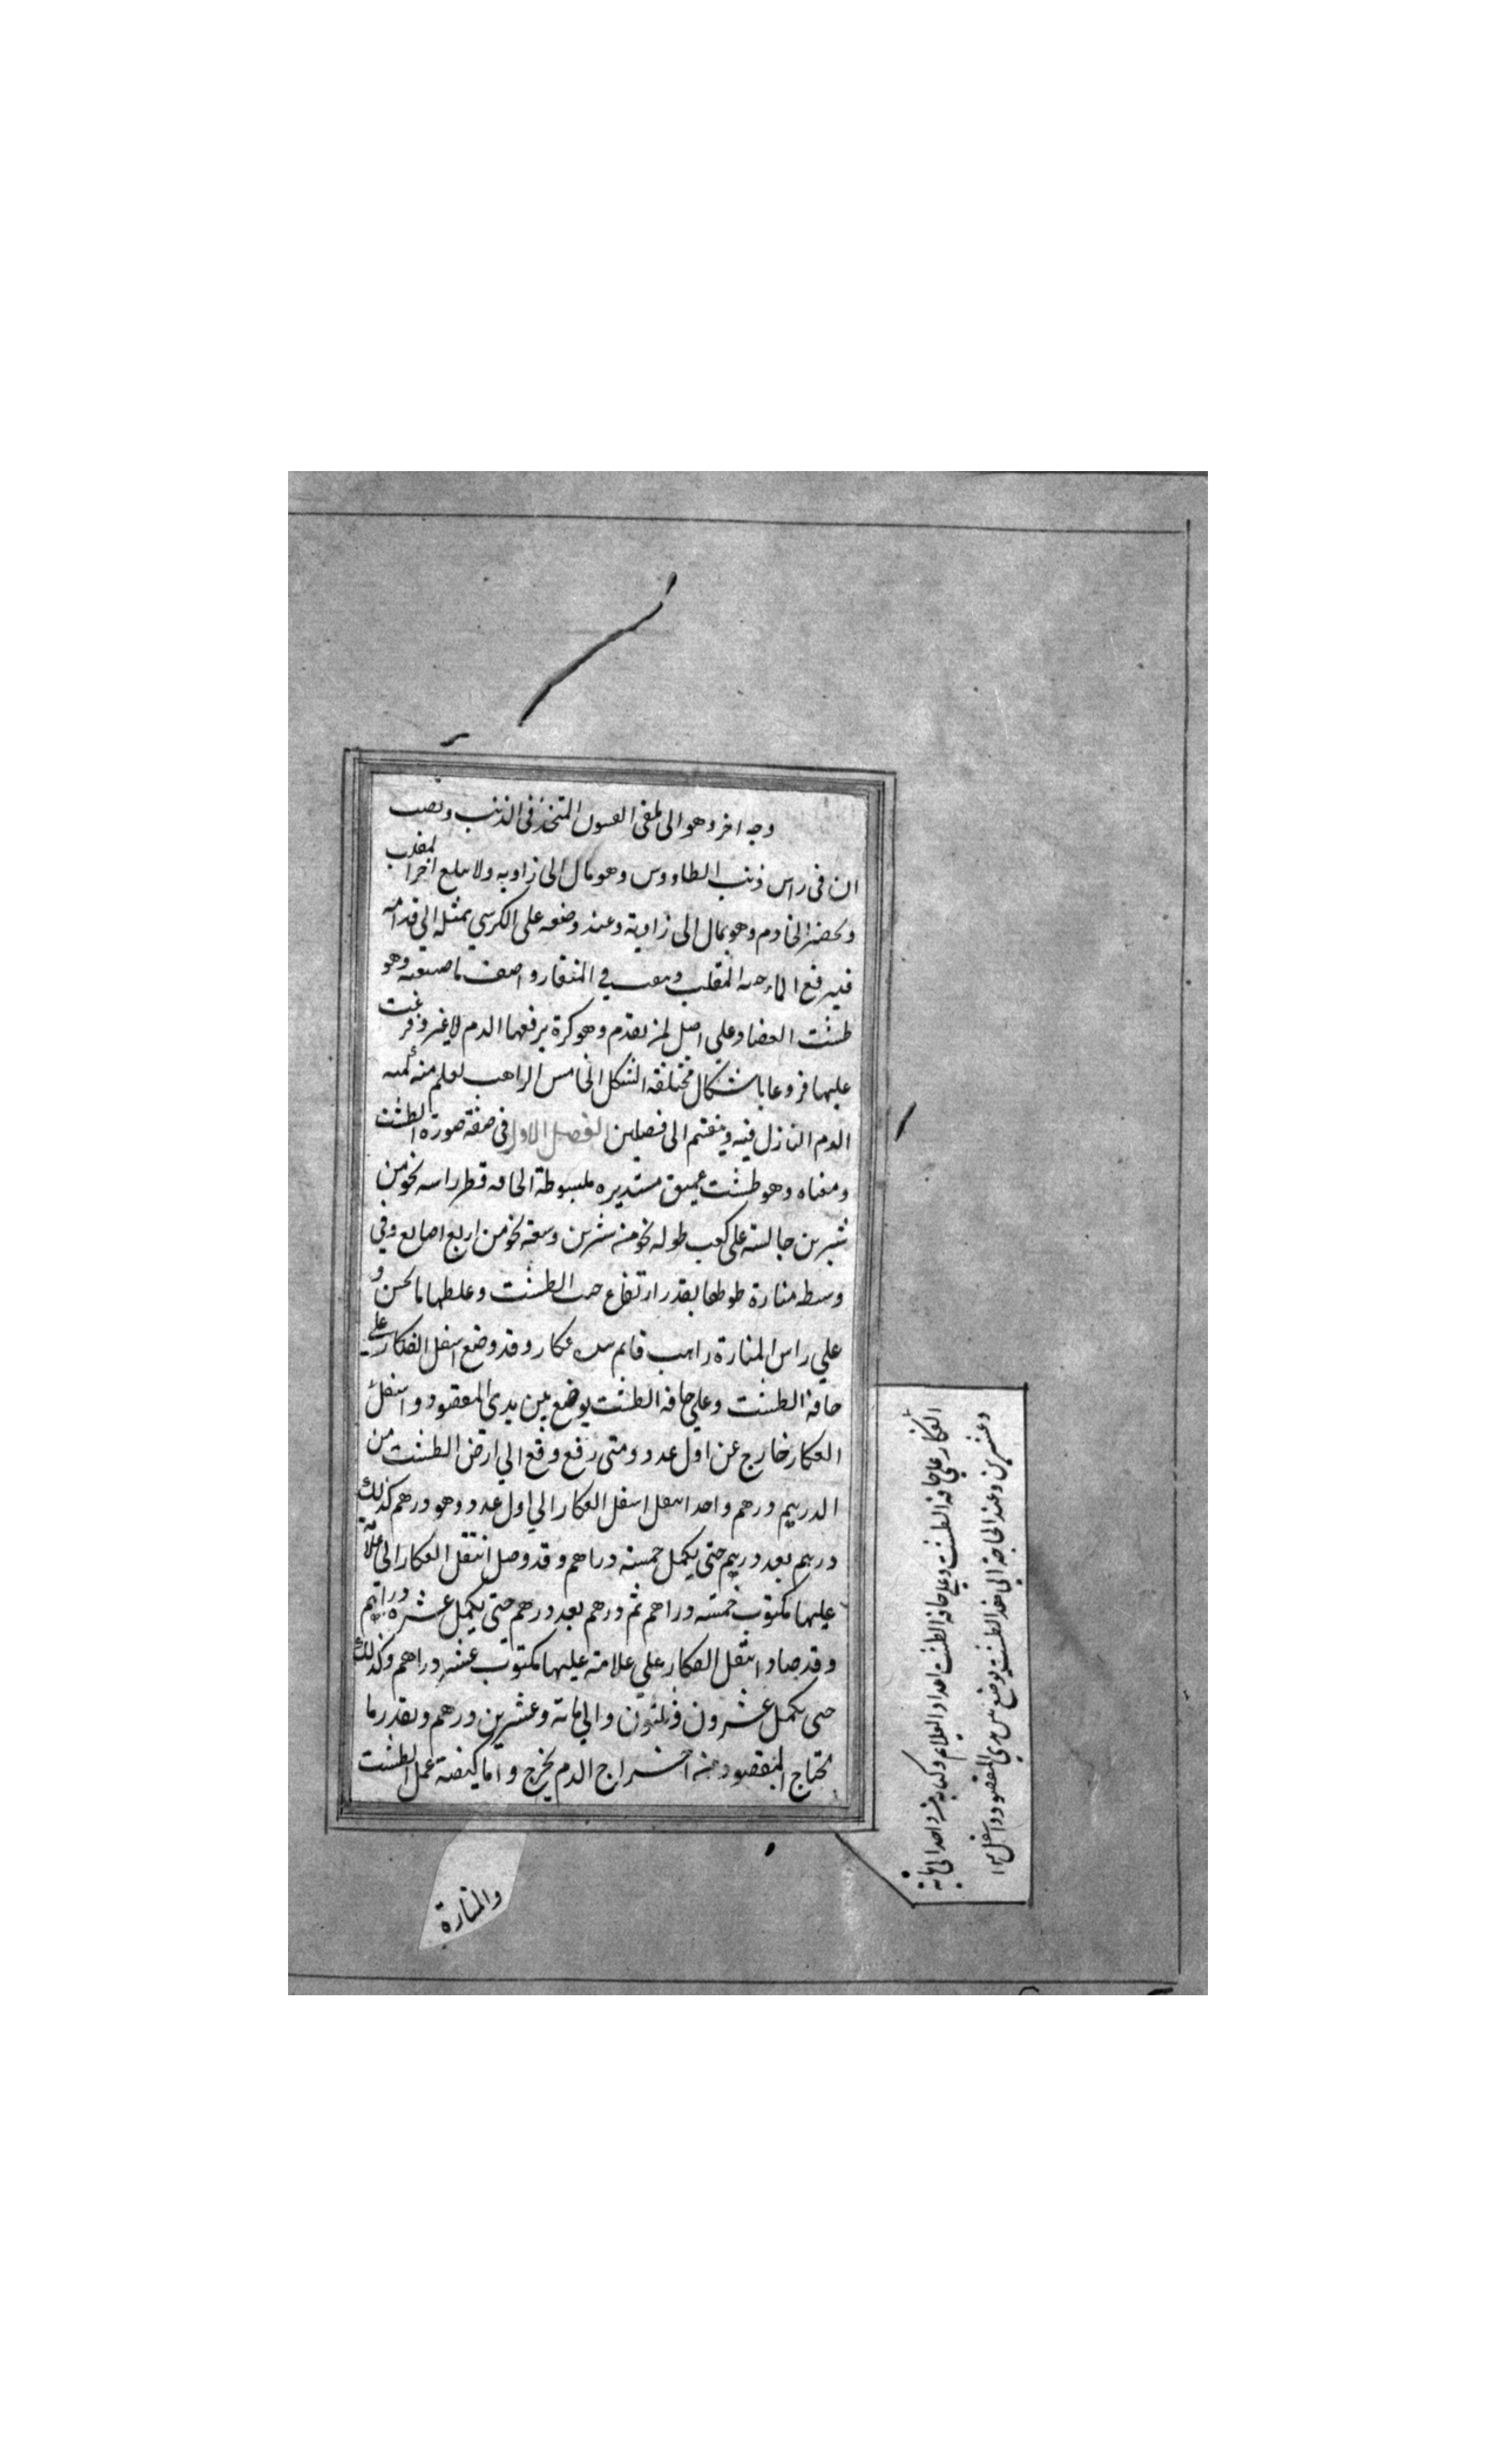 وجه اخر وهو الى ملقى العسول المتخذ فى الذنب ونصب
ان فى راس ذنب الطاووس وهو مال الى زاويه ولا سلع اخرا لمقلب
ويحضر الخادم وهو بمال الى زاوية وعند وضعه على الكرسي بمثله الي قدامه
فيرفع الماء المقلب في المنقار واصف ما صنعته وهو
طشت العضا وعلي اصل لمن تقدم وهو كرة يرفعها الدم لا غير وفرغت
عليها فروعا باشكال مختلفه الشكل الخامس الراهب يعلم منه كميه
الدم النازل فيه وينقسم الى فصلين الفصل الاول فى صفة صورة الطشت
ومعناه وهو طشت عميق مستديره مبسوطة الحافه قطر راسه نحو من
شبرين جالسة على كعب طوله نحو منه شبرين وسعته نحو من اربع اصابع وفي
وسطه منارة طولها بقدر ارتفاع الطشت وغلظها ما يحسن و
علي راس المنارة راهب قايم عكار وقد وضع اسفل العكار على
حافة الطشت وعلي حافه الطشت يوضع بين يدى المفصود واسفل
العكار خارج عن اول عدد ومتى رفع وقع الي ارض الطشت من
الدرهم درهم واحد اسفل العكار الي اول عدد وهو درهم كذلك
درهم بعد درهم حتى يكمل خمسة دراهم وقد وصل انتقل العكار الى علامة
عليها مكتوب خمسة دراهم ثم درهم بعد درهم حتى يكمل عشره دراهم
وقد صاد انتقل العكار علي علامة عليها مكتوب عشره دراهم وكذلك
حتى يكمل عشرون وثلثون والي ماية وعشرين درهم وبقدر ما
يحتاج المفصود منه اخراج الدم يخرج واما كيفية عمل الطشت
والمنارة
العكار علي حافه الطشت وعلي حافه الطشت اعداد العلام وكتابة من واحد الى ماية
وعشرين وعند الحاجة الي هذا الطشت يوضع بين يدي المفصود واسفل